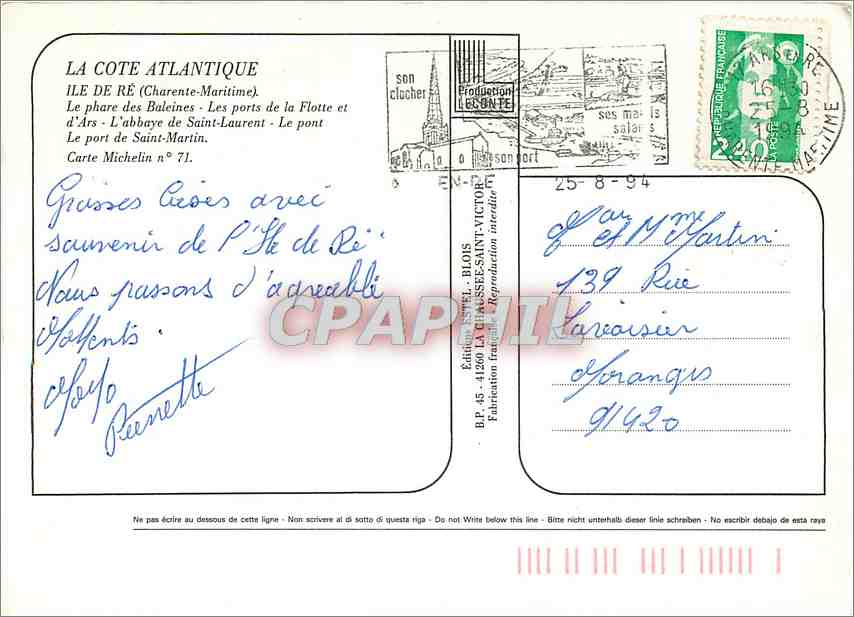 LA COTE ATLANTIQUE
ILE DE RÉ (Charente-Maritime).
Le phare des Baleines - Les ports de la Flotte et
d'Ars - L'abbaye de Saint-Laurent - Le pont
Le port de Saint-Martin.
Carte Michelin n° 71.
Grosses bises avec
souvenir de l'Ile de Ré.
Nous passons d'agreable
Moments.
Pierrette
son
clocher
Production
LECONTE
ses marais
salants
son port
EN-RE
25-8-94
16-30
25-8
1994
CHARENTE MARITIME
REPUBLIQUE FRANÇAISE
2,40
LA POSTE
Éditions ESTEL - BLOIS
B.P. 45 - 41260 LA CHAUSSEE-SAINT-VICTOR
Fabrication française - Reproduction interdite
CPAPHIL
et Mme Martin
139 Rue
Lavoisier
Morangis
91420
Ne pas écrire au dessous de cette ligne - Non scrivere al di sotto di questa riga - Do not Write below this line - Bitte nicht unterhalb dieser linie schreiben - No escribir debajo de esta raya